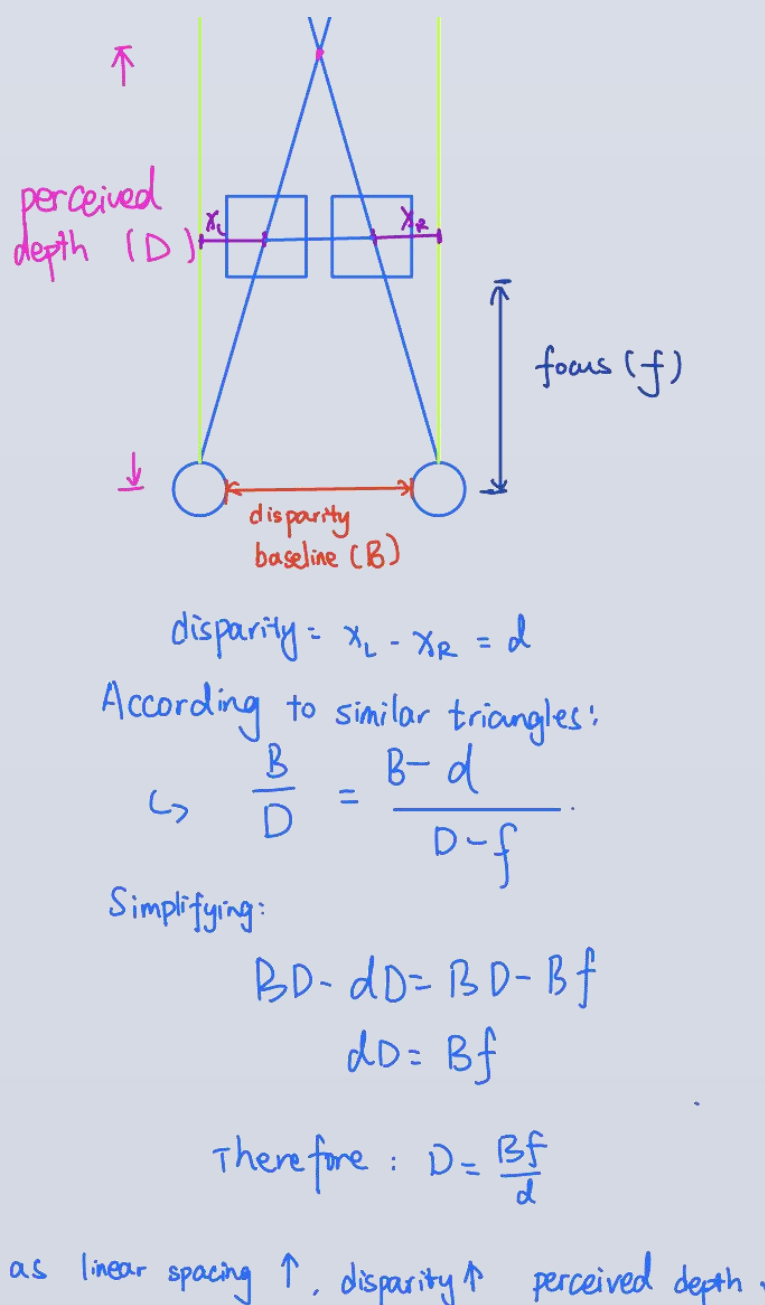 perceived
depth (D)
x_L
x_R
focus (f)
disparity
baseline (B)
disparity = x_L - x_R = d
According to similar triangles:
↳ B/D = (B - d)/(D - f)
Simplifying:
BD - dD = BD - Bf
dD = Bf
Therefore : D = Bf/d
as linear spacing ↑, disparity ↑ perceived depth